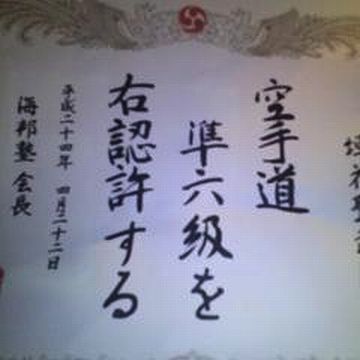 空手道
準六級を
右認許する
平成二十四年 四月二十二日
海邦塾 会長